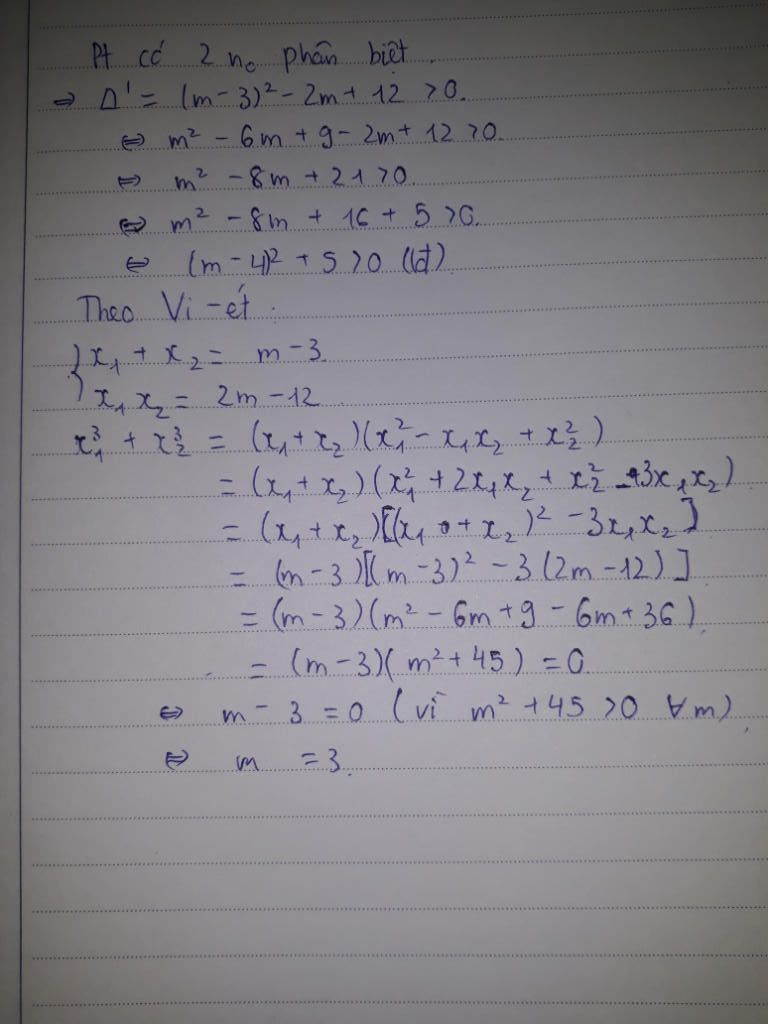 Pt có 2 n₀ phân biệt.
⇒ Δ' = (m - 3)² - 2m + 12 > 0.
⇔ m² - 6m + 9 - 2m + 12 > 0.
⇔ m² - 8m + 21 > 0.
⇔ m² - 8m + 16 + 5 > 0.
⇔ (m - 4)² + 5 > 0 (lđ)
Theo Vi-ét.
{ x₁ + x₂ = m - 3.
x₁x₂ = 2m - 12
x₁³ + x₂³ = (x₁ + x₂)(x₁² - x₁x₂ + x₂²)
= (x₁ + x₂)(x₁² + 2x₁x₂ + x₂² - 3x₁x₂)
= (x₁ + x₂)[(x₁ + x₂)² - 3x₁x₂]
= (m - 3)[(m - 3)² - 3(2m - 12)]
= (m - 3)(m² - 6m + 9 - 6m + 36)
= (m - 3)(m² + 45) = 0
⇔ m - 3 = 0 (vì m² + 45 > 0 ∀m)
⇔ m = 3.